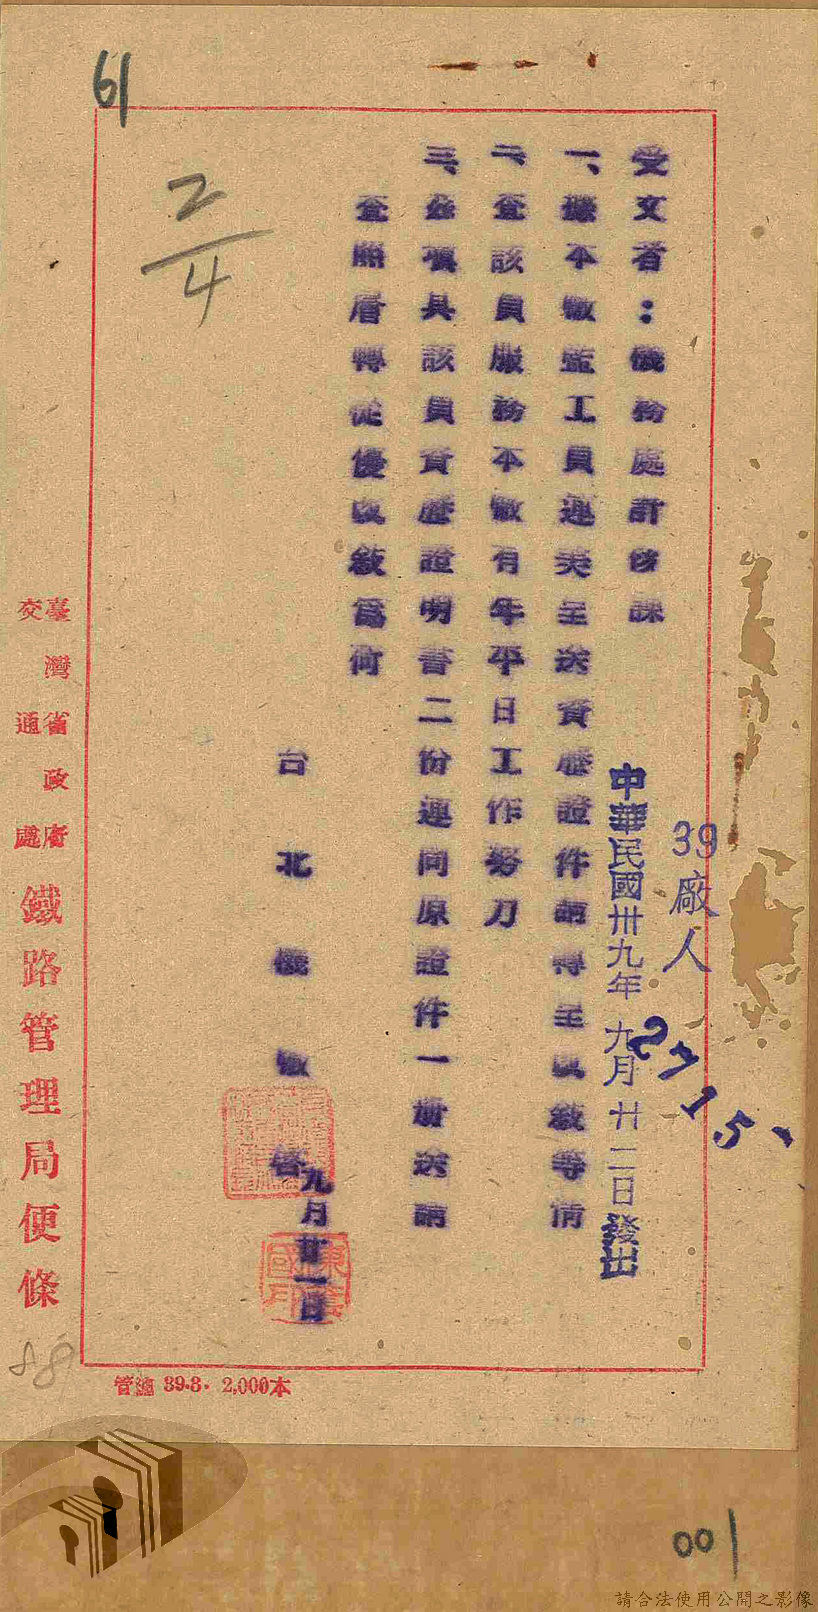 61
2/4
受文者：機務處計劃課
39廠人
2715
中華民國卅九年 九月 廿二日發出
一、據本廠監工員連癸呈送資歷證件請轉呈改敘等情
二、查該員服務本廠有年平日工作努力
三、茲填具該員資歷證明書二份連同原證件一併送請
查照層轉從優改敘為荷
台北機廠 啓
九月廿一日
臺灣省政府
交通處
鐵路管理局便條
88
管總 39.3. 2,000本
001
請合法使用公開之影像